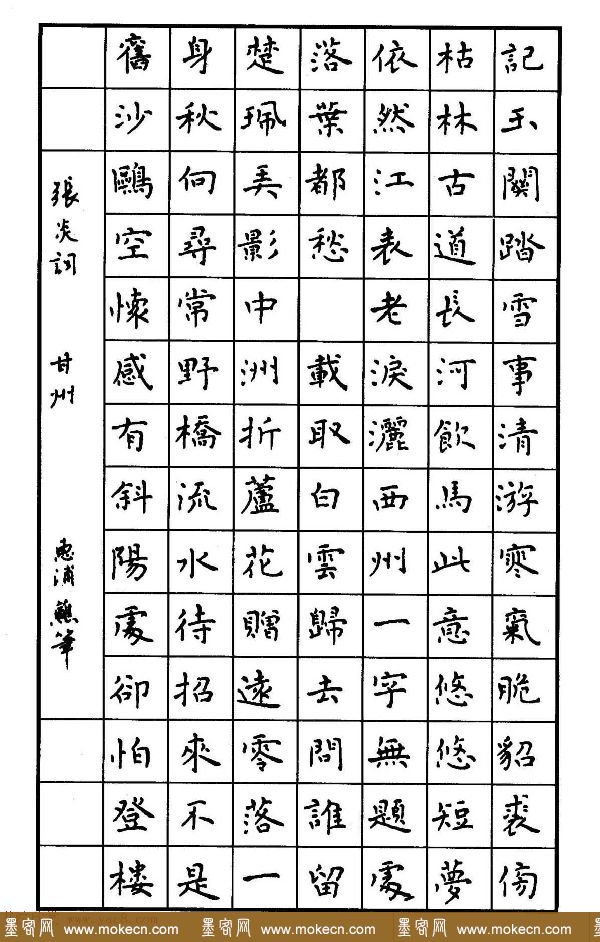 記玉關踏雪事清游寒氣脆貂裘傍
枯林古道長河飲馬此意悠悠短夢
依然江表老淚灑西州一字無題處
落葉都愁 載取白雲歸去問誰留
楚珮弄影中洲折蘆花贈遠零落一
身秋向尋常野橋流水待招來不是
舊沙鷗空懷感有斜陽處卻怕登楼
張炎詞 甘州 惠浦
墨客网 www.mokecn.com 墨客网 www.mokecn.com 墨客网 www.mokecn.com